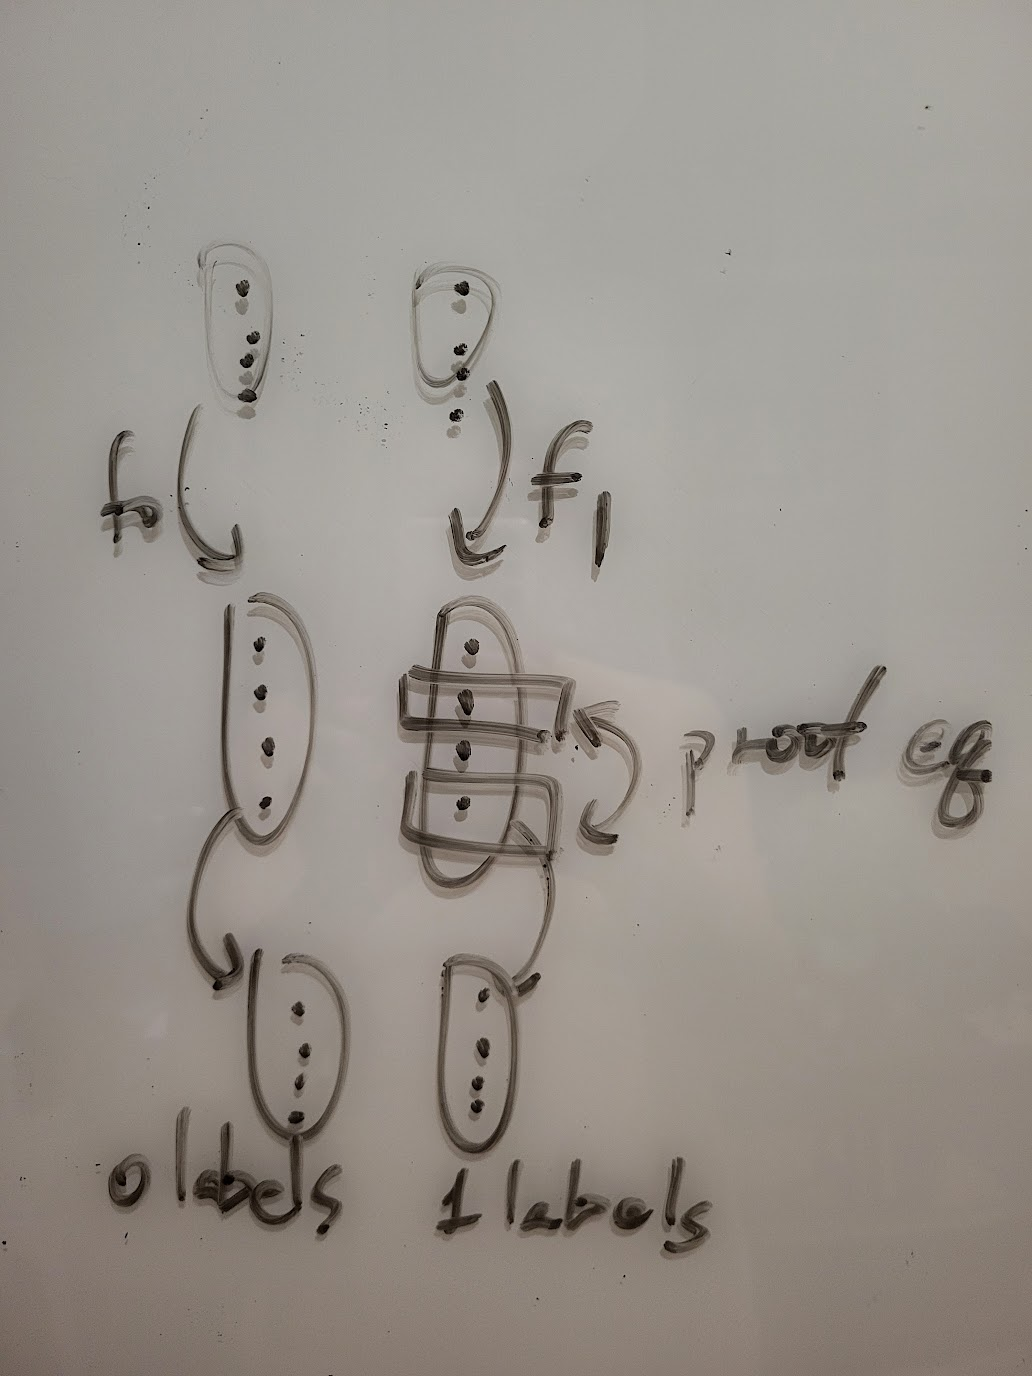 f₀
f₁
proof eq
0 labels
1 labels